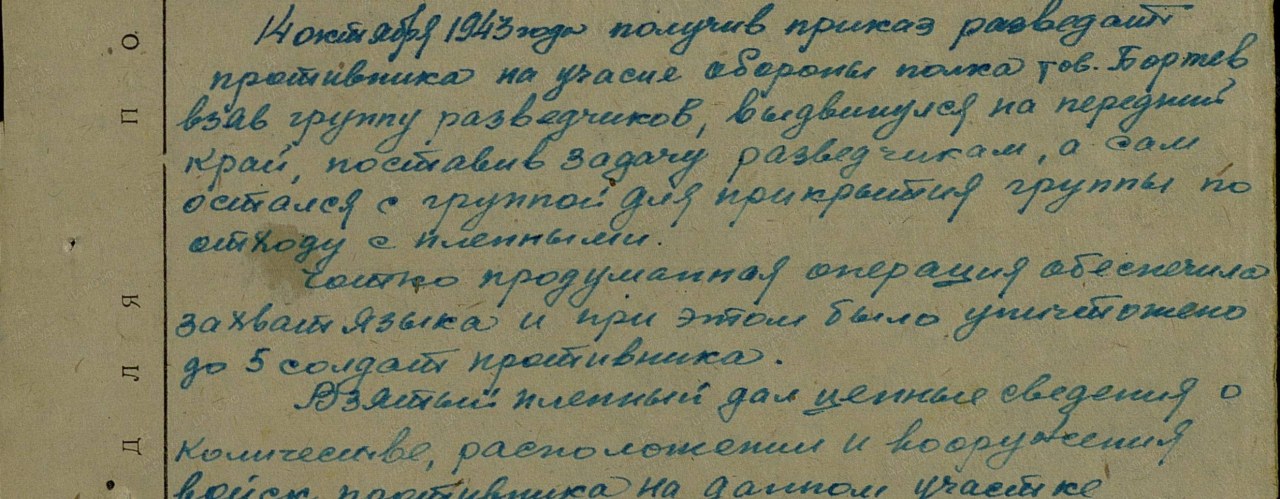 14 октября 1943 года получив приказ разведать
противника на участке обороны полка тов. Бортев
взяв группу разведчиков, выдвинулся на передний
край, поставив задачу разведчикам, а сам
остался с группой для прикрытия группы по
отходу с пленными.
Чотко продуманная операция обеспечила
захват языка и при этом было уничтожено
до 5 солдат противника.
Взятый пленный дал ценные сведения о
количестве, расположении и вооружения
войск противника на данном участке
ДЛЯ ПО